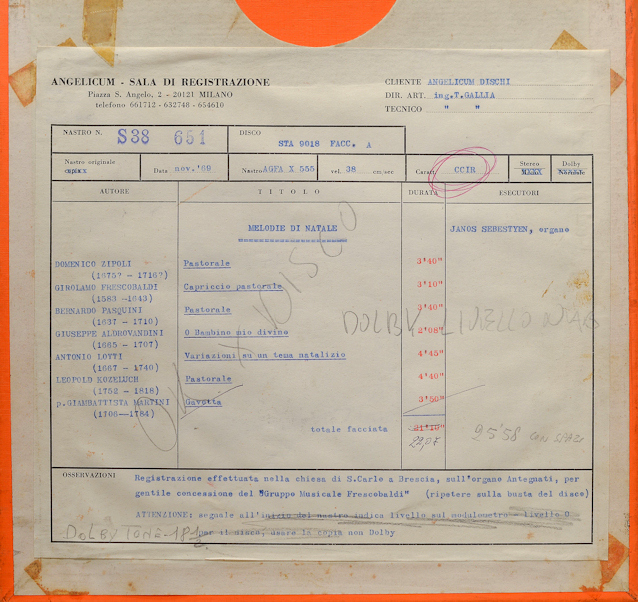 ANGELICUM - SALA DI REGISTRAZIONE
Piazza S. Angelo, 2 - 20121 MILANO
telefono 661712 - 632748 - 654610
CLIENTE ANGELICUM DISCHI
DIR. ART. ing.T.GALLIA
TECNICO " "
NASTRO N. S38 651
DISCO STA 9018 FACC. A
Nastro originale
copia x
Data nov.'69
Nastro AGFA X 555
vel. 38 cm/sec
Caratt. CCIR
Stereo
Mono
Dolby
Normale
AUTORE TITOLO DURATA ESECUTORI
MELODIE DI NATALE JANOS SEBESTYEN, organo
DOMENICO ZIPOLI Pastorale 3'40"
(1675? - 1716?)
GIROLAMO FRESCOBALDI Capriccio pastorale 3'10"
(1583 -1643)
BERNARDO PASQUINI Pastorale 3'40"
(1637 - 1710)
GIUSEPPE ALDROVANDINI O Bambino mio divino 2'08"
(1665 - 1707)
ANTONIO LOTTI Variazioni su un tema natalizio 4'45"
(1667 - 1740)
LEOPOLD KOZELUCH Pastorale 4'40"
(1752 - 1818)
p.GIAMBATTISTA MARTINI Gavotta 3'50"
(1706—1784)
OK X DISCO
DOLBY LIVELLO NAB
totale facciata 21'10"
22,07
25'58 CON SPAZI
OSSERVAZIONI
Registrazione effettuata nella chiesa di S.Carlo a Brescia, sull'organo Antegnati, per
gentile concessione del "Gruppo Musicale Frescobaldi" (ripetere sulla busta del disco)
ATTENZIONE: segnale all'inizio del nastro indica livello sul modulometro - livello 0
per il disco, usare la copia non Dolby
DOLBY TONE -18½